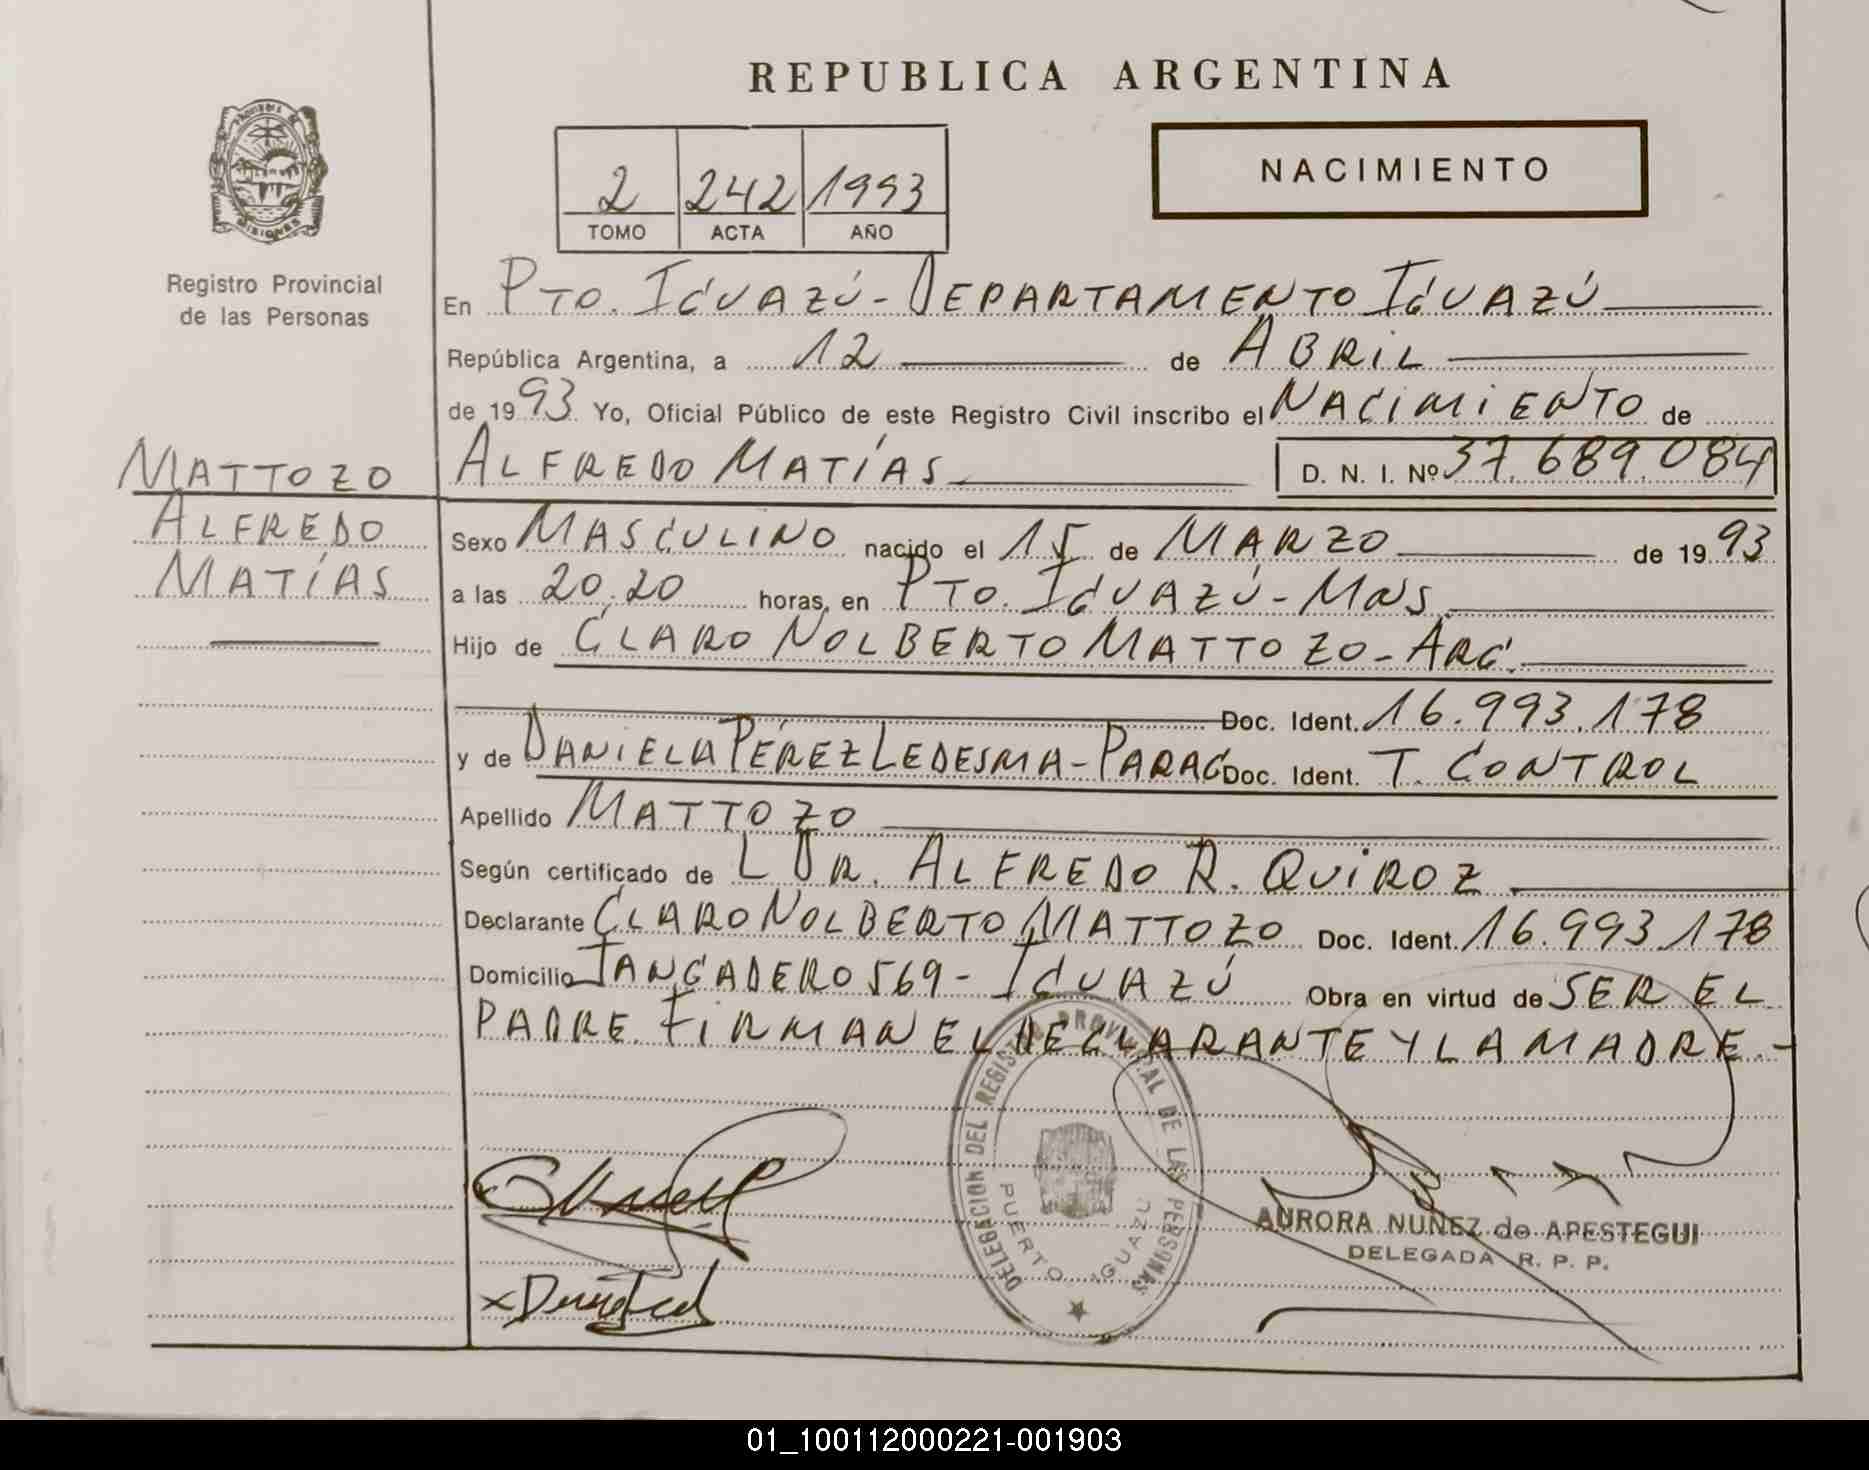 REPUBLICA ARGENTINA
NACIMIENTO
2 242 1993
TOMO ACTA AÑO
PROVINCIA DE
MISIONES
Registro Provincial
de las Personas
En PTO. IGUAZÚ - DEPARTAMENTO IGUAZÚ
República Argentina, a 12 de ABRIL
de 1993 Yo, Oficial Público de este Registro Civil inscribo el NACIMIENTO de
ALFREDO MATÍAS D. N. I. Nº 37.689.084
MATTOZO
ALFREDO
MATÍAS
Sexo MASCULINO nacido el 15 de MARZO de 1993
a las 20,20 horas, en PTO. IGUAZÚ - MNS.
Hijo de CLARO NOLBERTO MATTOZO - ARG.
Doc. Ident. 16.993.178
y de DANIELA PÉREZ LEDESMA - PARAG Doc. Ident. T. CONTROL
Apellido MATTOZO
Según certificado de L DR. ALFREDO R. QUIROZ
Declarante CLARO NOLBERTO MATTOZO Doc. Ident. 16.993.178
Domicilio TANGADERO 569 - IGUAZÚ Obra en virtud de SER EL
PADRE. FIRMAN EL DECLARANTE Y LA MADRE.-
DELEGACION DEL REGISTRO PROVINCIAL DE LAS PERSONAS
PUERTO IGUAZU
AURORA NUÑEZ de APESTEGUI
DELEGADA R. P. P.
01_100112000221-001903